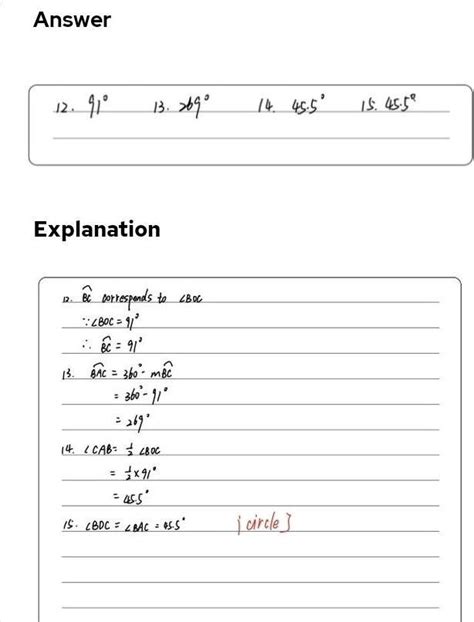 Answer
12. 91° 13. 269° 14. 45.5° 15. 45.5°
Explanation
12. B͡C corresponds to ∠BOC
∵∠BOC = 91°
∴ B͡C = 91°
13. B͡AC = 360° - mB͡C
= 360° - 91°
= 269°
14. ∠CAB = 1/2 ∠BOC
= 1/2 × 91°
= 45.5°
15. ∠BDC = ∠BAC = 45.5° {circle}